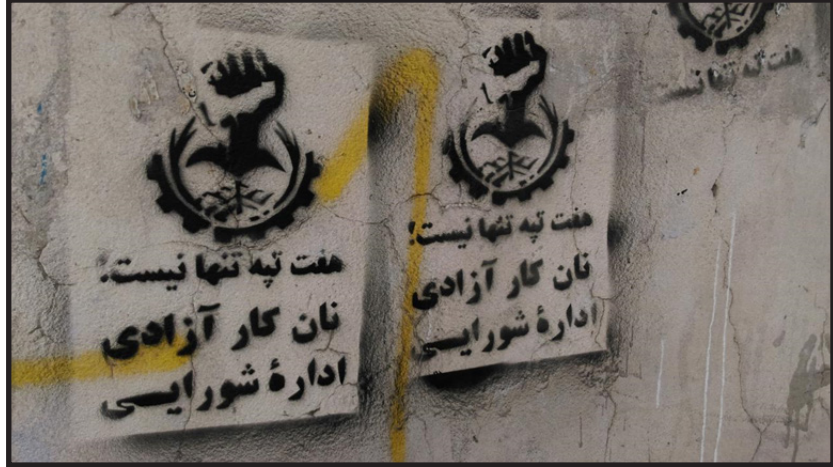 هفت تپه تنها نیست!
نان کار آزادی
ادارهٔ شورایی
هفت تپه تنها نیست!
نان کار آزادی
ادارهٔ شورایی
هفت تپه تنها نیست